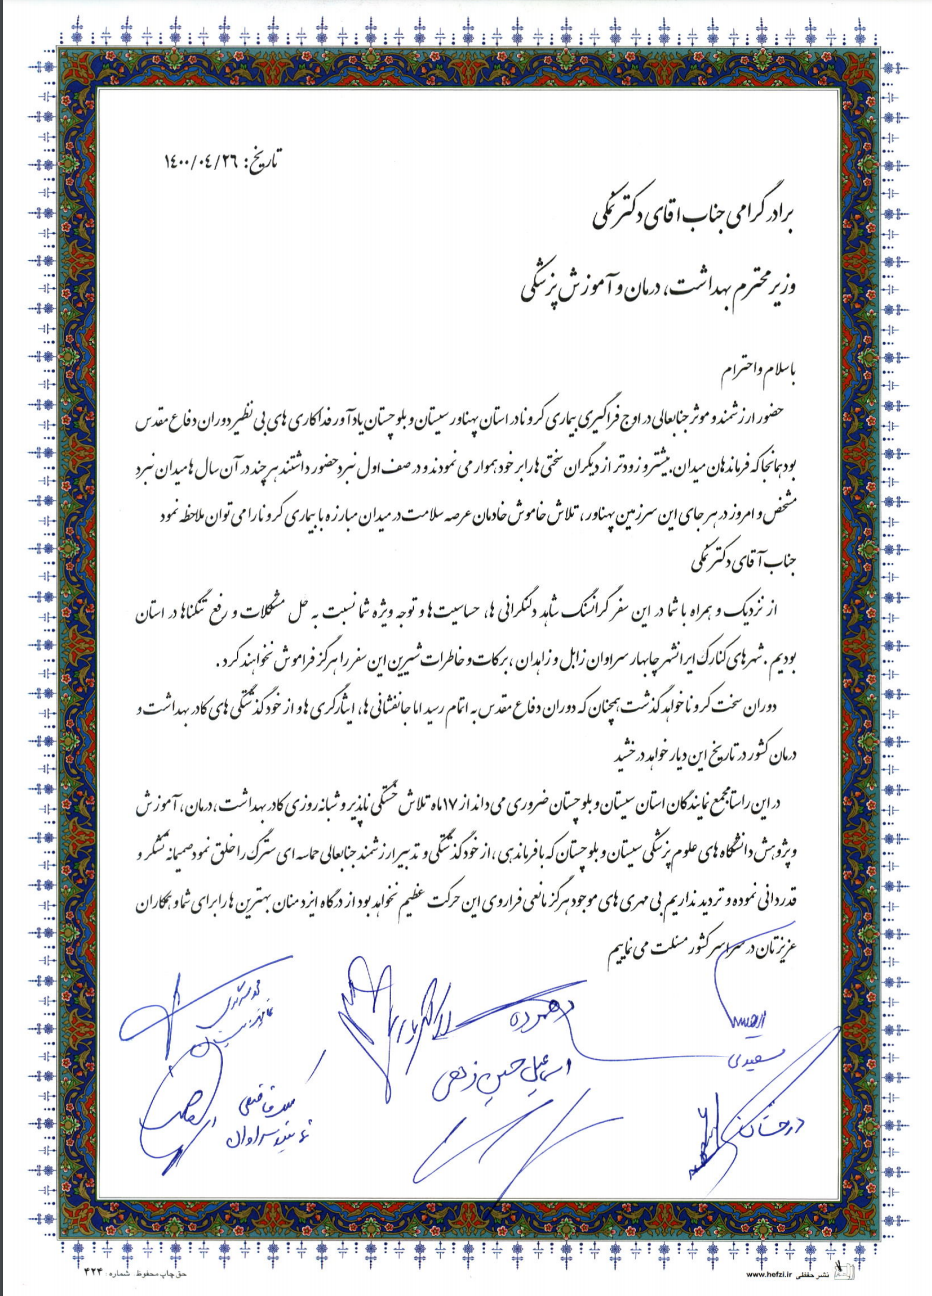 تاریخ: ۱۴۰۰/۰۴/۲۶
برادر گرامی جناب اقای دکتر نمکی
وزیر محترم بهداشت، درمان و آموزش پزشکی
باسلام و احترام
حضور ارزشمند و موثر جنابعالی در اوج فراگیری بیماری کرونا در استان پهناور سیستان و بلوچستان یادآور فداکاری های بی نظیر دوران دفاع مقدس
بود همانجا که فرماندهان میدان، بیشتر و زودتر از دیگران سختی ها را بر خود هموار می نمودند و در صف اول نبرد حضور داشتند هر چند در آن سال ها میدان نبرد
مشخص و امروز در هر جای این سرزمین پهناور، تلاش خاموش خادمان عرصه سلامت در میدان مبارزه با بیماری کرونا را می توان ملاحظه نمود
جناب آقای دکتر نمکی
از نزدیک و همراه با شما در این سفر گرانسنگ شاهد دلنگرانی ها، حساسیت ها و توجه ویژه شما نسبت به حل مشکلات و رفع تنگناها در استان
بودیم. شهرهای کنارک ایرانشهر چابهار سراوان زابل و زاهدان، برکات و خاطرات شیرین این سفر را هرگز فراموش نخواهند کرد.
دوران سخت کرونا خواهد گذشت همچنان که دوران دفاع مقدس به اتمام رسید اما جانفشانی ها، ایثارگری ها و از خود گذشتگی های کادر بهداشت و
درمان کشور در تاریخ این دیار خواهد درخشید
در این راستا مجمع نمایندگان استان سیستان و بلوچستان ضروری می داند از ۱۷ ماه تلاش خستگی ناپذیر و شبانه روزی کادر بهداشت، درمان، آموزش
و پژوهش دانشگاه های علوم پزشکی سیستان و بلوچستان که با فرماندهی، از خود گذشتگی و تدبیر ارزشمند جنابعالی حماسه ای سترگ را خلق نمود صمیمانه تشکر و
قدردانی نموده و تردید نداریم بی مهری های موجود هرگز مانعی فراروی این حرکت عظیم نخواهد بود از درگاه ایزد منان بهترین ها را برای شما و همکاران
عزیزتان در سراسر کشور مسئلت می نماییم
سعیدی
اسماعیل حسین زهی
نماینده سراوان
حق چاپ محفوظ. شماره: ۴۲۴
www.hefzi.ir نشر حفظی